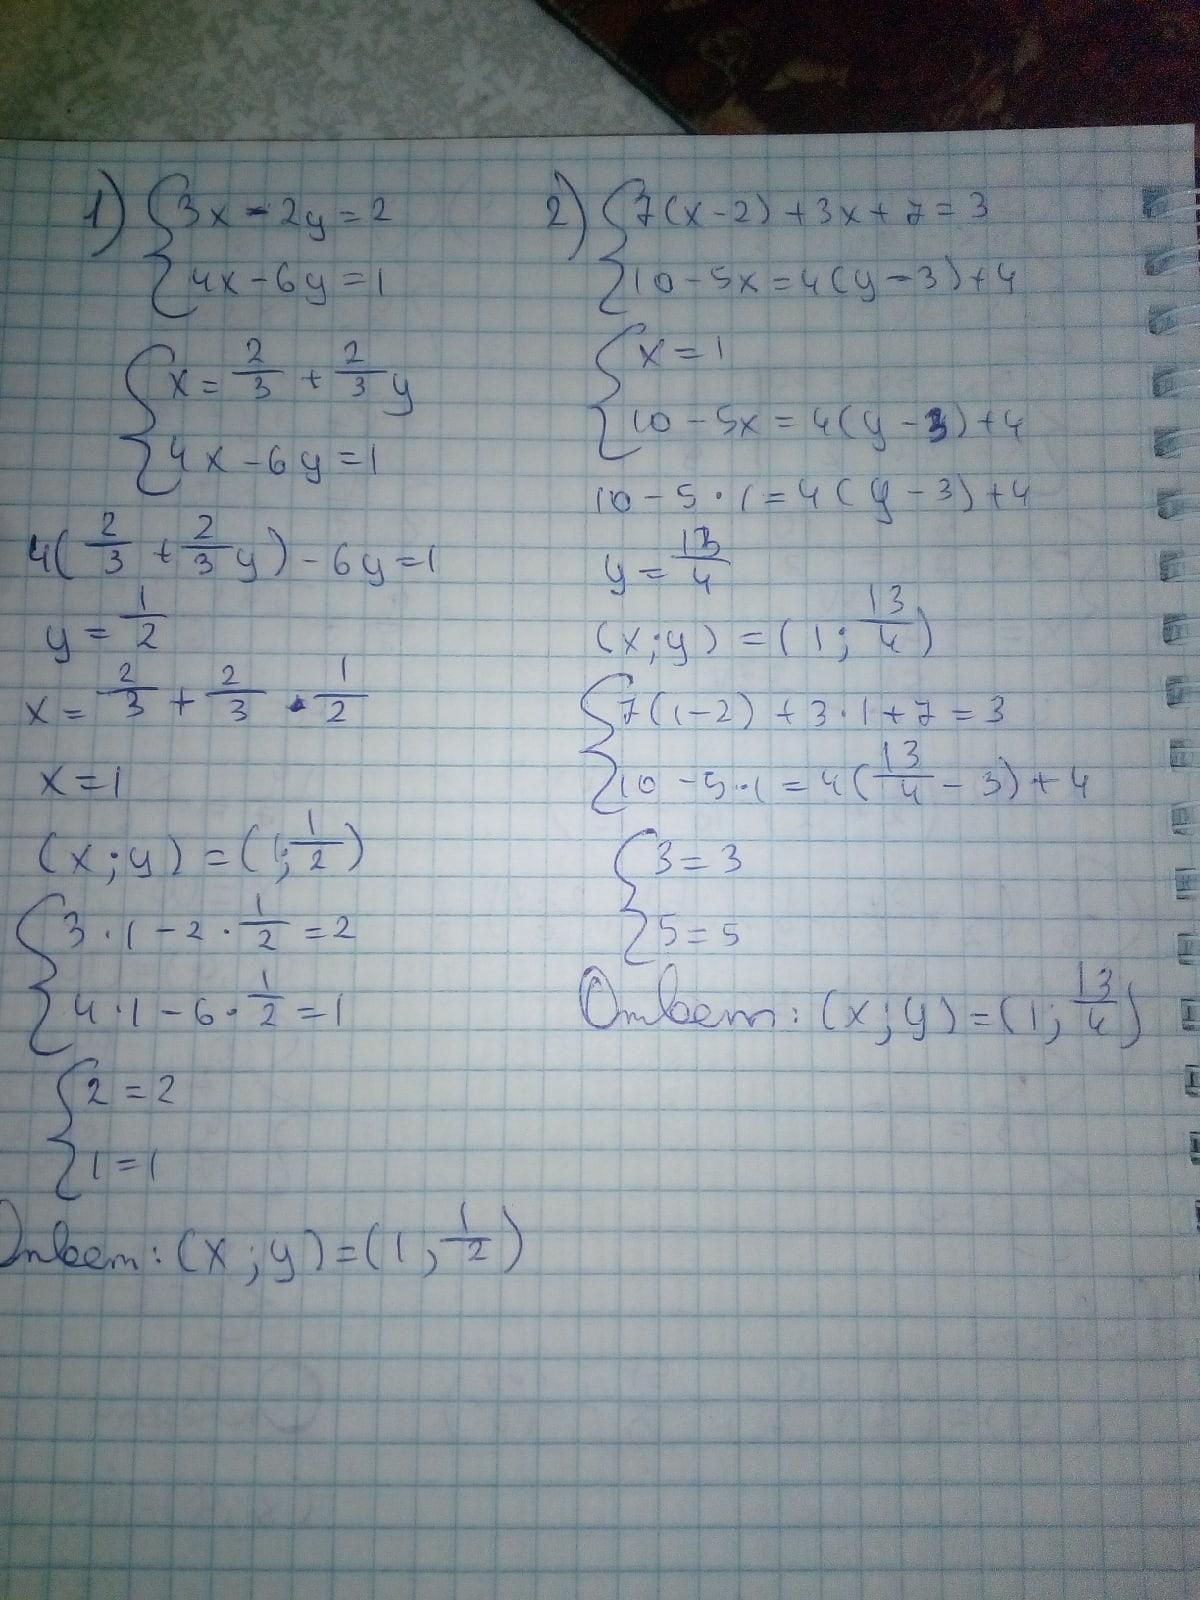 1) { 3x - 2y = 2
4x - 6y = 1
{ x = 2/3 + 2/3 y
4x - 6y = 1
4(2/3 + 2/3 y) - 6y = 1
y = 1/2
x = 2/3 + 2/3 · 1/2
x = 1
(x; y) = (1; 1/2)
{ 3 · 1 - 2 · 1/2 = 2
4 · 1 - 6 · 1/2 = 1
{ 2 = 2
1 = 1
Ответ: (x; y) = (1, 1/2)
2) { 7(x - 2) + 3x + 7 = 3
10 - 5x = 4(y - 3) + 4
{ x = 1
10 - 5x = 4(y - 3) + 4
10 - 5 · 1 = 4(y - 3) + 4
y = 13/4
(x; y) = (1; 13/4)
{ 7(1 - 2) + 3 · 1 + 7 = 3
10 - 5 · 1 = 4(13/4 - 3) + 4
{ 3 = 3
5 = 5
Ответ: (x; y) = (1; 13/4)